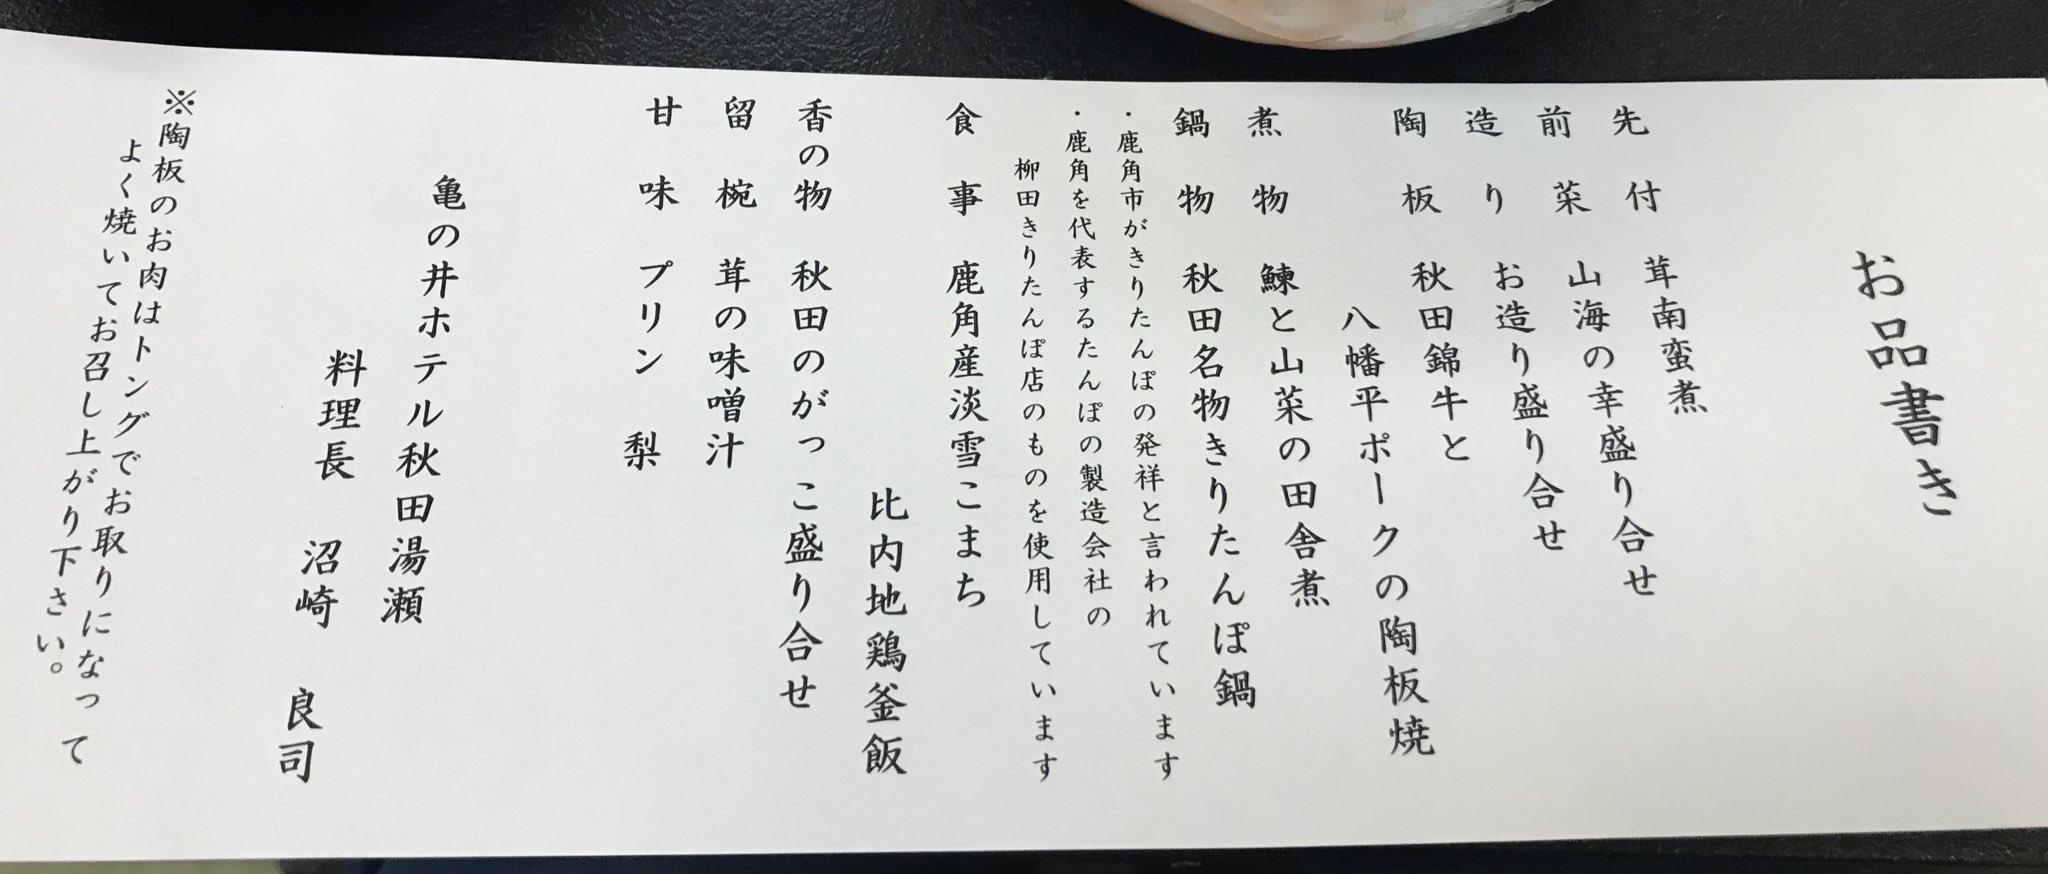 お品書き
先付 茸南蛮煮
前菜 山海の幸盛り合せ
造り お造り盛り合せ
陶板 秋田錦牛と
八幡平ポークの陶板焼
煮物 鰊と山菜の田舎煮
鍋物 秋田名物きりたんぽ鍋
・鹿角市がきりたんぽの発祥と言われています
・鹿角を代表するたんぽの製造会社の
柳田きりたんぽ店のものを使用しています
食事 鹿角産淡雪こまち
比内地鶏釜飯
香の物 秋田のがっこ盛り合せ
留椀 茸の味噌汁
甘味 プリン 梨
亀の井ホテル秋田湯瀬
料理長 沼崎 良司
※陶板のお肉はトングでお取りになって
よく焼いてお召し上がり下さい。